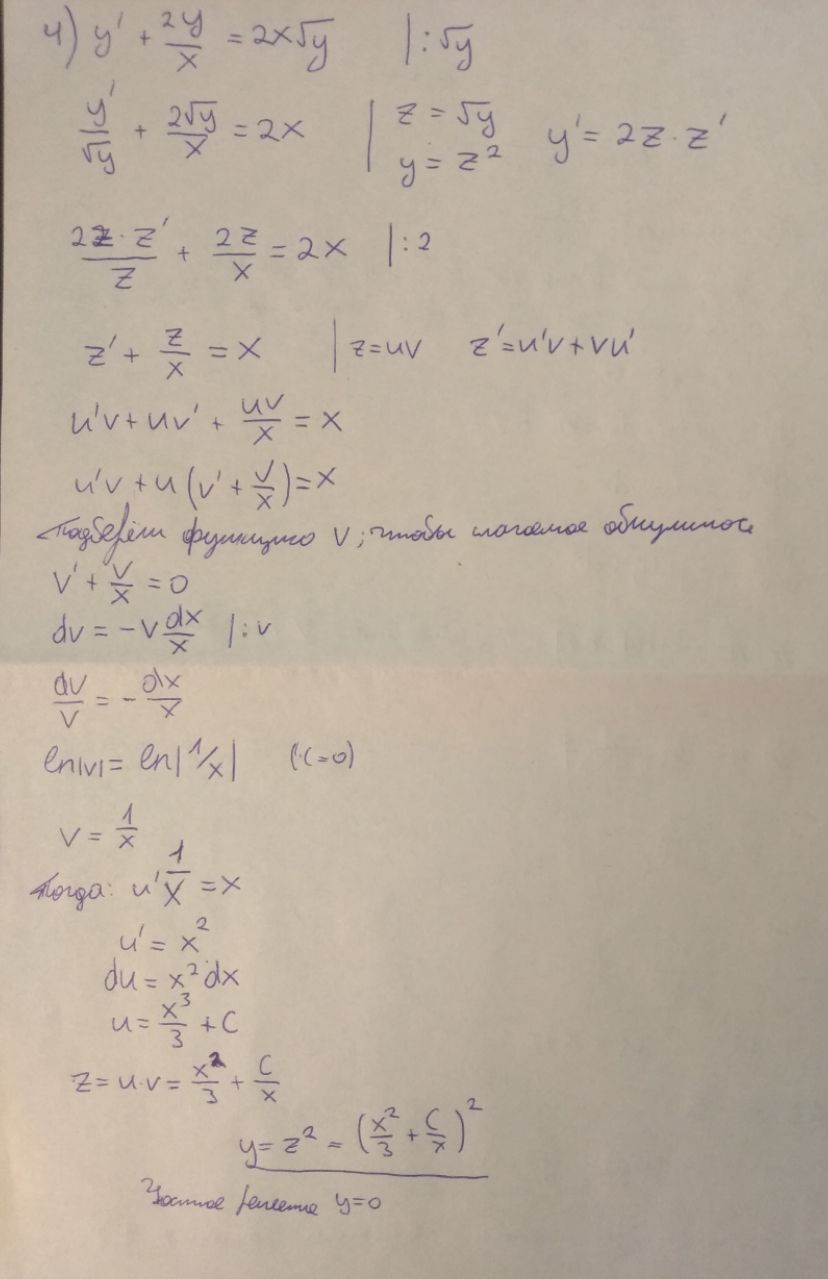 4) y' + 2y/x = 2x√y |:√y
y'/√y + 2√y/x = 2x | z = √y y = z² y' = 2z·z'
2z·z'/z + 2z/x = 2x |:2
z' + z/x = x | z=uv z'=u'v+vu'
u'v+uv' + uv/x = x
u'v+u(v'+v/x)=x
Подберём функцию v, чтобы слагаемое обнулилось
v' + v/x = 0
dv = -v dx/x |:v
dv/v = - dx/x
ln|v|= ln|1/x| (C=0)
v = 1/x
Тогда: u' 1/x = x
u' = x²
du = x²dx
u = x³/3 + C
z = u·v = x²/3 + C/x
y = z² = (x²/3 + C/x)²
Частное решение y=0